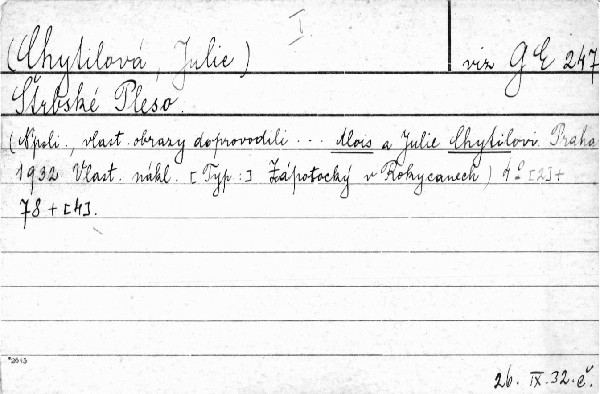 I.
(Chytilová, Julie) viz GE 247
Štrbské Pleso.
(Npsli., vlast. obrazy doprovodili ... Alois a Julie Chytilovi. Praha
1932 Vlast. nákl. [Typ:] Zápotocký v Rokycanech) 4° [2]+
78 + [4].
26. IX. 32. č.